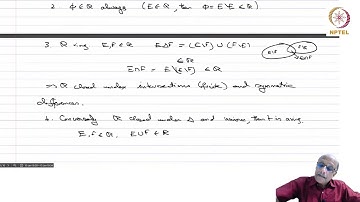 2. Φ∈R always (E∈R, then Φ=E\E∈R)
NPTEL
3. R ring E,F∈R EΔF = (E\F) ∪ (F\E)
∈R
E∩F = E\(E\F) ∈R
⇒ R closed under intersections (finite) and symmetric
differences.
4. Conversely R closed under Δ and unions, then it is a ring.
E,F∈R, E∪F∈R